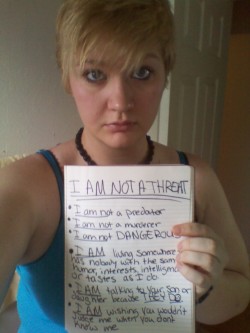 I AM NOT A THREAT
• I am not a predator
• I am not a murderer
• I am not DANGEROUS
• I AM living somewhere
nobody with the same
humor, interests, intelligence
or tastes as I do
• I AM talking to your son or
daughter because THEY DO.
• I AM wishing you wouldn't
me when you don't
know me